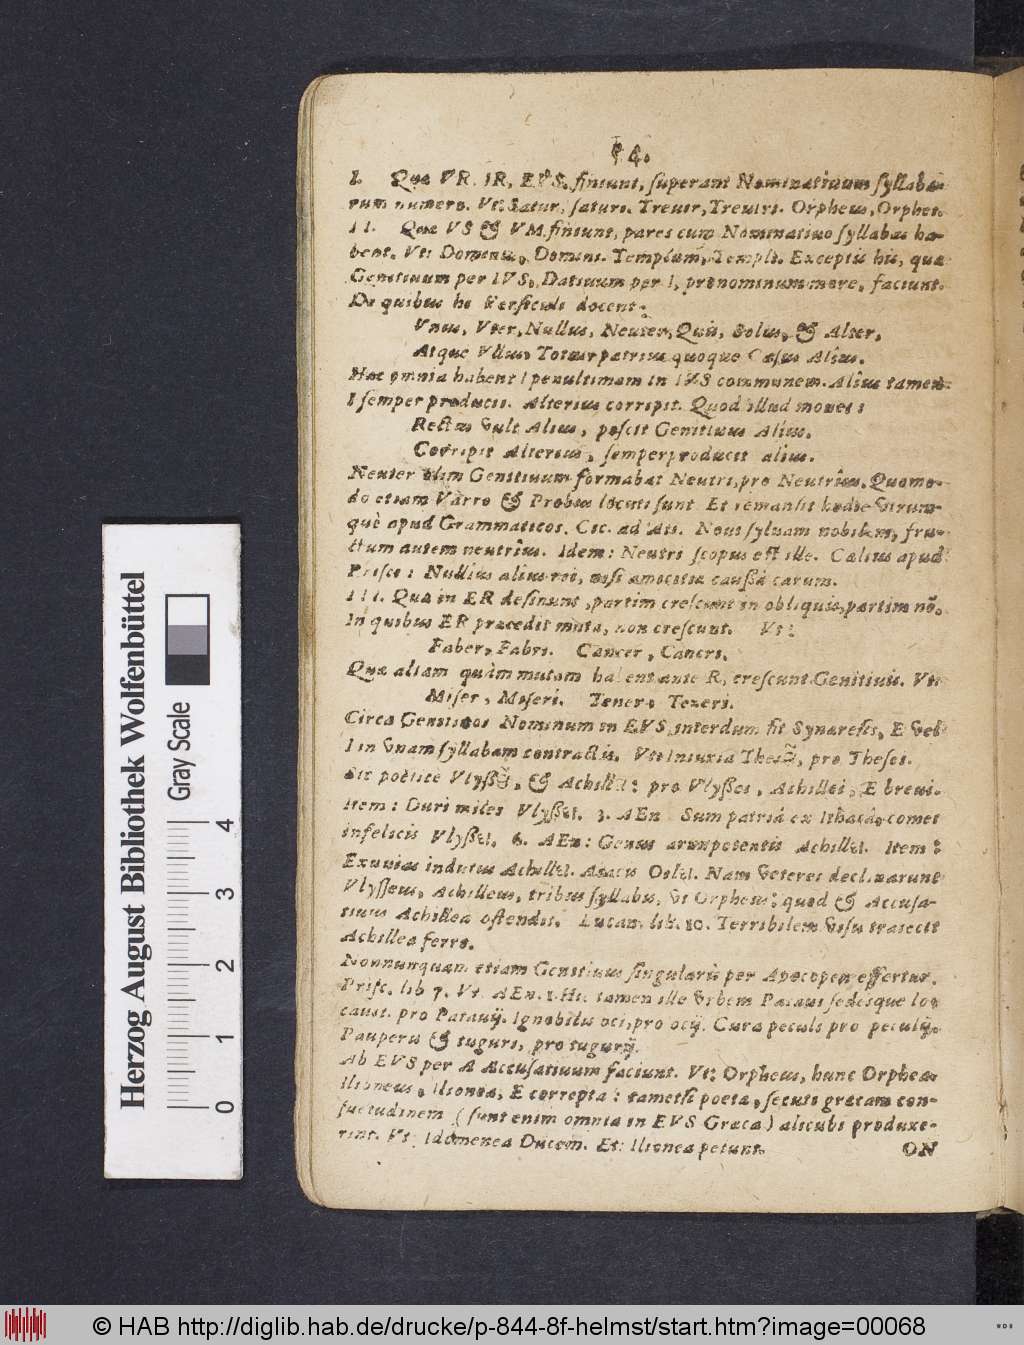 54.
I. Quæ VR, IR, EVS, finiunt, superant Nominatiuum syllaba-
rum numero. Vt: Satur, saturi. Treuir, Treuiri. Orpheus, Orphei.
II. Quæ VS & VM finiunt, pares cum Nominatiuo syllabas ha-
bent. Vt: Dominus, Domini. Templum, Templi. Exceptis his, quæ
Genitiuum per IVS, Datiuum per I, pronominum more, faciunt.
De quibus hi versiculi docent:
Vnus, Vter, Nullus, Neuter, Quis, Solus, & Alter,
Atque Vllus, Totus patrius quoque Casus Alius.
Hæc omnia habent I penultimam in IVS communem. Alius tamen
I semper producit. Alterius corripit. Quod illud monet:
Rectus vult Alius, poscit Genitiuus Alius.
Corripit Alterius, semper producit alius.
Neuter olim Genitiuum formabat Neutri, pro Neutrius. Quomo-
do etiam Varro & Probus locuti sunt Et remansit hodie vtrum-
què apud Grammaticos. Cic. ad Att. Noui syluam nobilem, fru-
ctum autem neutrius. Idem: Neutri scopus est ille. Cælius apud
Prisc: Nullius alius rei, nisi amicitiæ caußâ carum.
III. Quæ in ER desinunt, partim crescunt in obliquis, partim nō.
In quibus ER præcedit muta, non crescunt. Vt:
Faber, Fabri. Cancer, Cancri.
Quæ aliam quàm mutam habent ante R, crescunt Genitiuis. Vt:
Miser, Miseri. Tener, Teneri.
Circa Genitiuos Nominum in EVS interdum fit Synæresis, E vel
I in vnam syllabam contractis. Vt: Iniuria pro Thesei.
Sic poëticè & pro Vlyßei, Achillei, E breui.
Item: Duri miles Vlyßei. 3. AEn Sum patriâ ex Ithacâ, comes
infelicis Vlyßei. 6. AEn: Genus armipotentis Achillei. Item:
Exuuias indutus Achillei. Nam veteres declinarunt
Vlysseus, Achilleus, tribus syllabis, vt Orpheus: quod & Accusa-
tiuus Achillea ostendit. Lucan. lib. 10. Terribilem visu traiecit
Achillea ferro.
Nonnunquam etiam Genitiuus singularis per Apocopen effertur.
Prisc. lib 7. Vt AEn. 1. Hic tamen ille vrbem Pataui sedesque lo-
cauit. pro Patauij. Ignobilis oci, pro ocij. Cura peculi pro peculij.
Pauperis & tuguri, pro tugurij.
Ab EVS per A Accusatiuum faciunt. Vt: Orpheus, hunc Orphea.
Ilioneus, Ilionea, E correpta: tametsi poetæ, secuti græcam con-
suetudinem (sunt enim omnia in EVS Græca) alicubi produxe-
rint. Vt: Idomenea Ducem. Et: Ilionea petunt.
ON
Herzog August Bibliothek Wolfenbüttel
Gray Scale
0 1 2 3 4
© HAB http://diglib.hab.de/drucke/p-844-8f-helmst/start.htm?image=00068